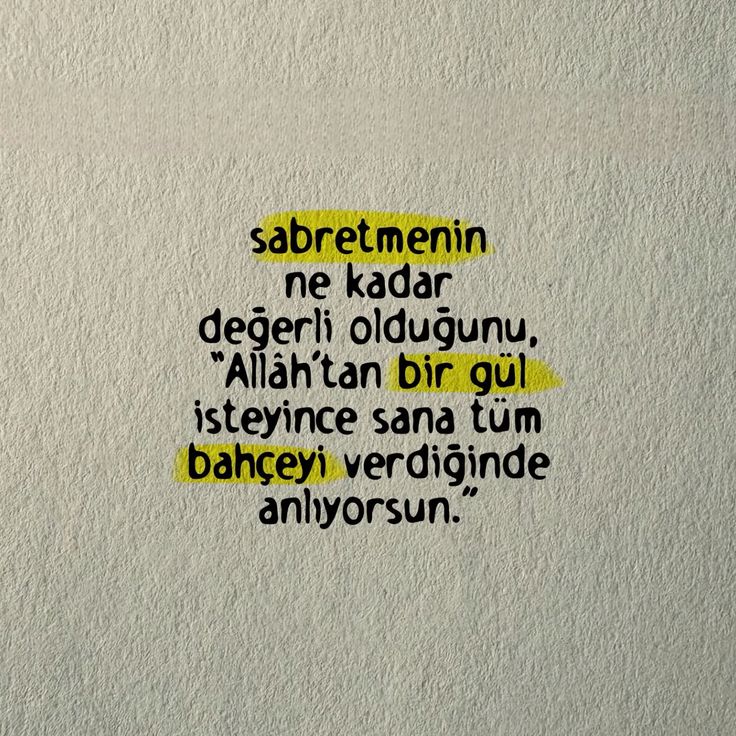 sabretmenin
ne kadar
değerli olduğunu,
"Allâh'tan bir gül
isteyince sana tüm
bahçeyi verdiğinde
anlıyorsun."